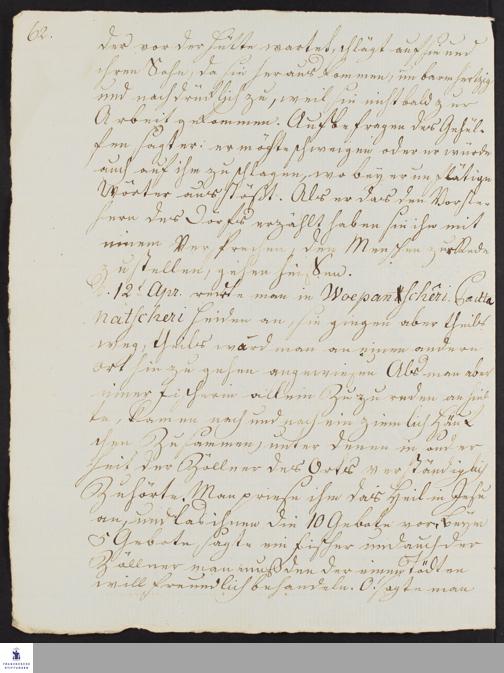 62.
der vor der Hütte wartet, schlägt auf sie und
ihren Sohn, da sie heraus kommen, unbarmhertzig
und nachdrücklich zu, weil sie nicht bald zur
Arbeit gekommen. Auf befragen des Gehül-
fen sagt er: er möchte schweigen oder er würde
auch auf ihn zuschlagen, wobey er unflätige
Wörter ausstößt. Als er das den Vorste-
hern des Dorfs erzählt, haben sie ihn mit
einem Versprechen, den Menschen zur Rede
zu stellen, gehen heißen.
D. 12t Apr. redete man in Woepanscheri
natscheri Heiden an, sie giengen aber theils
weg, theils ward man an einen andern
ort hin zu gehen angewiesen. Als man aber
einer Fischerin allein zuzureden anhiel-
te, kamen nach und nach ein ziemlich Häuf-
chen zusammen, unter denen insonder-
heit der Zöllner des Orts verständiglich
zuhörte. Man priese ihm das Heil in Jesu
an, und las ihnen die 10 Gebote vor, beym
5 Gebote, sagte ein Fischer und auch der
Zöllner man muß den der einen tödten
will freundlich behandeln. O! sagte man
FRANCKESCHE
STIFTUNGEN